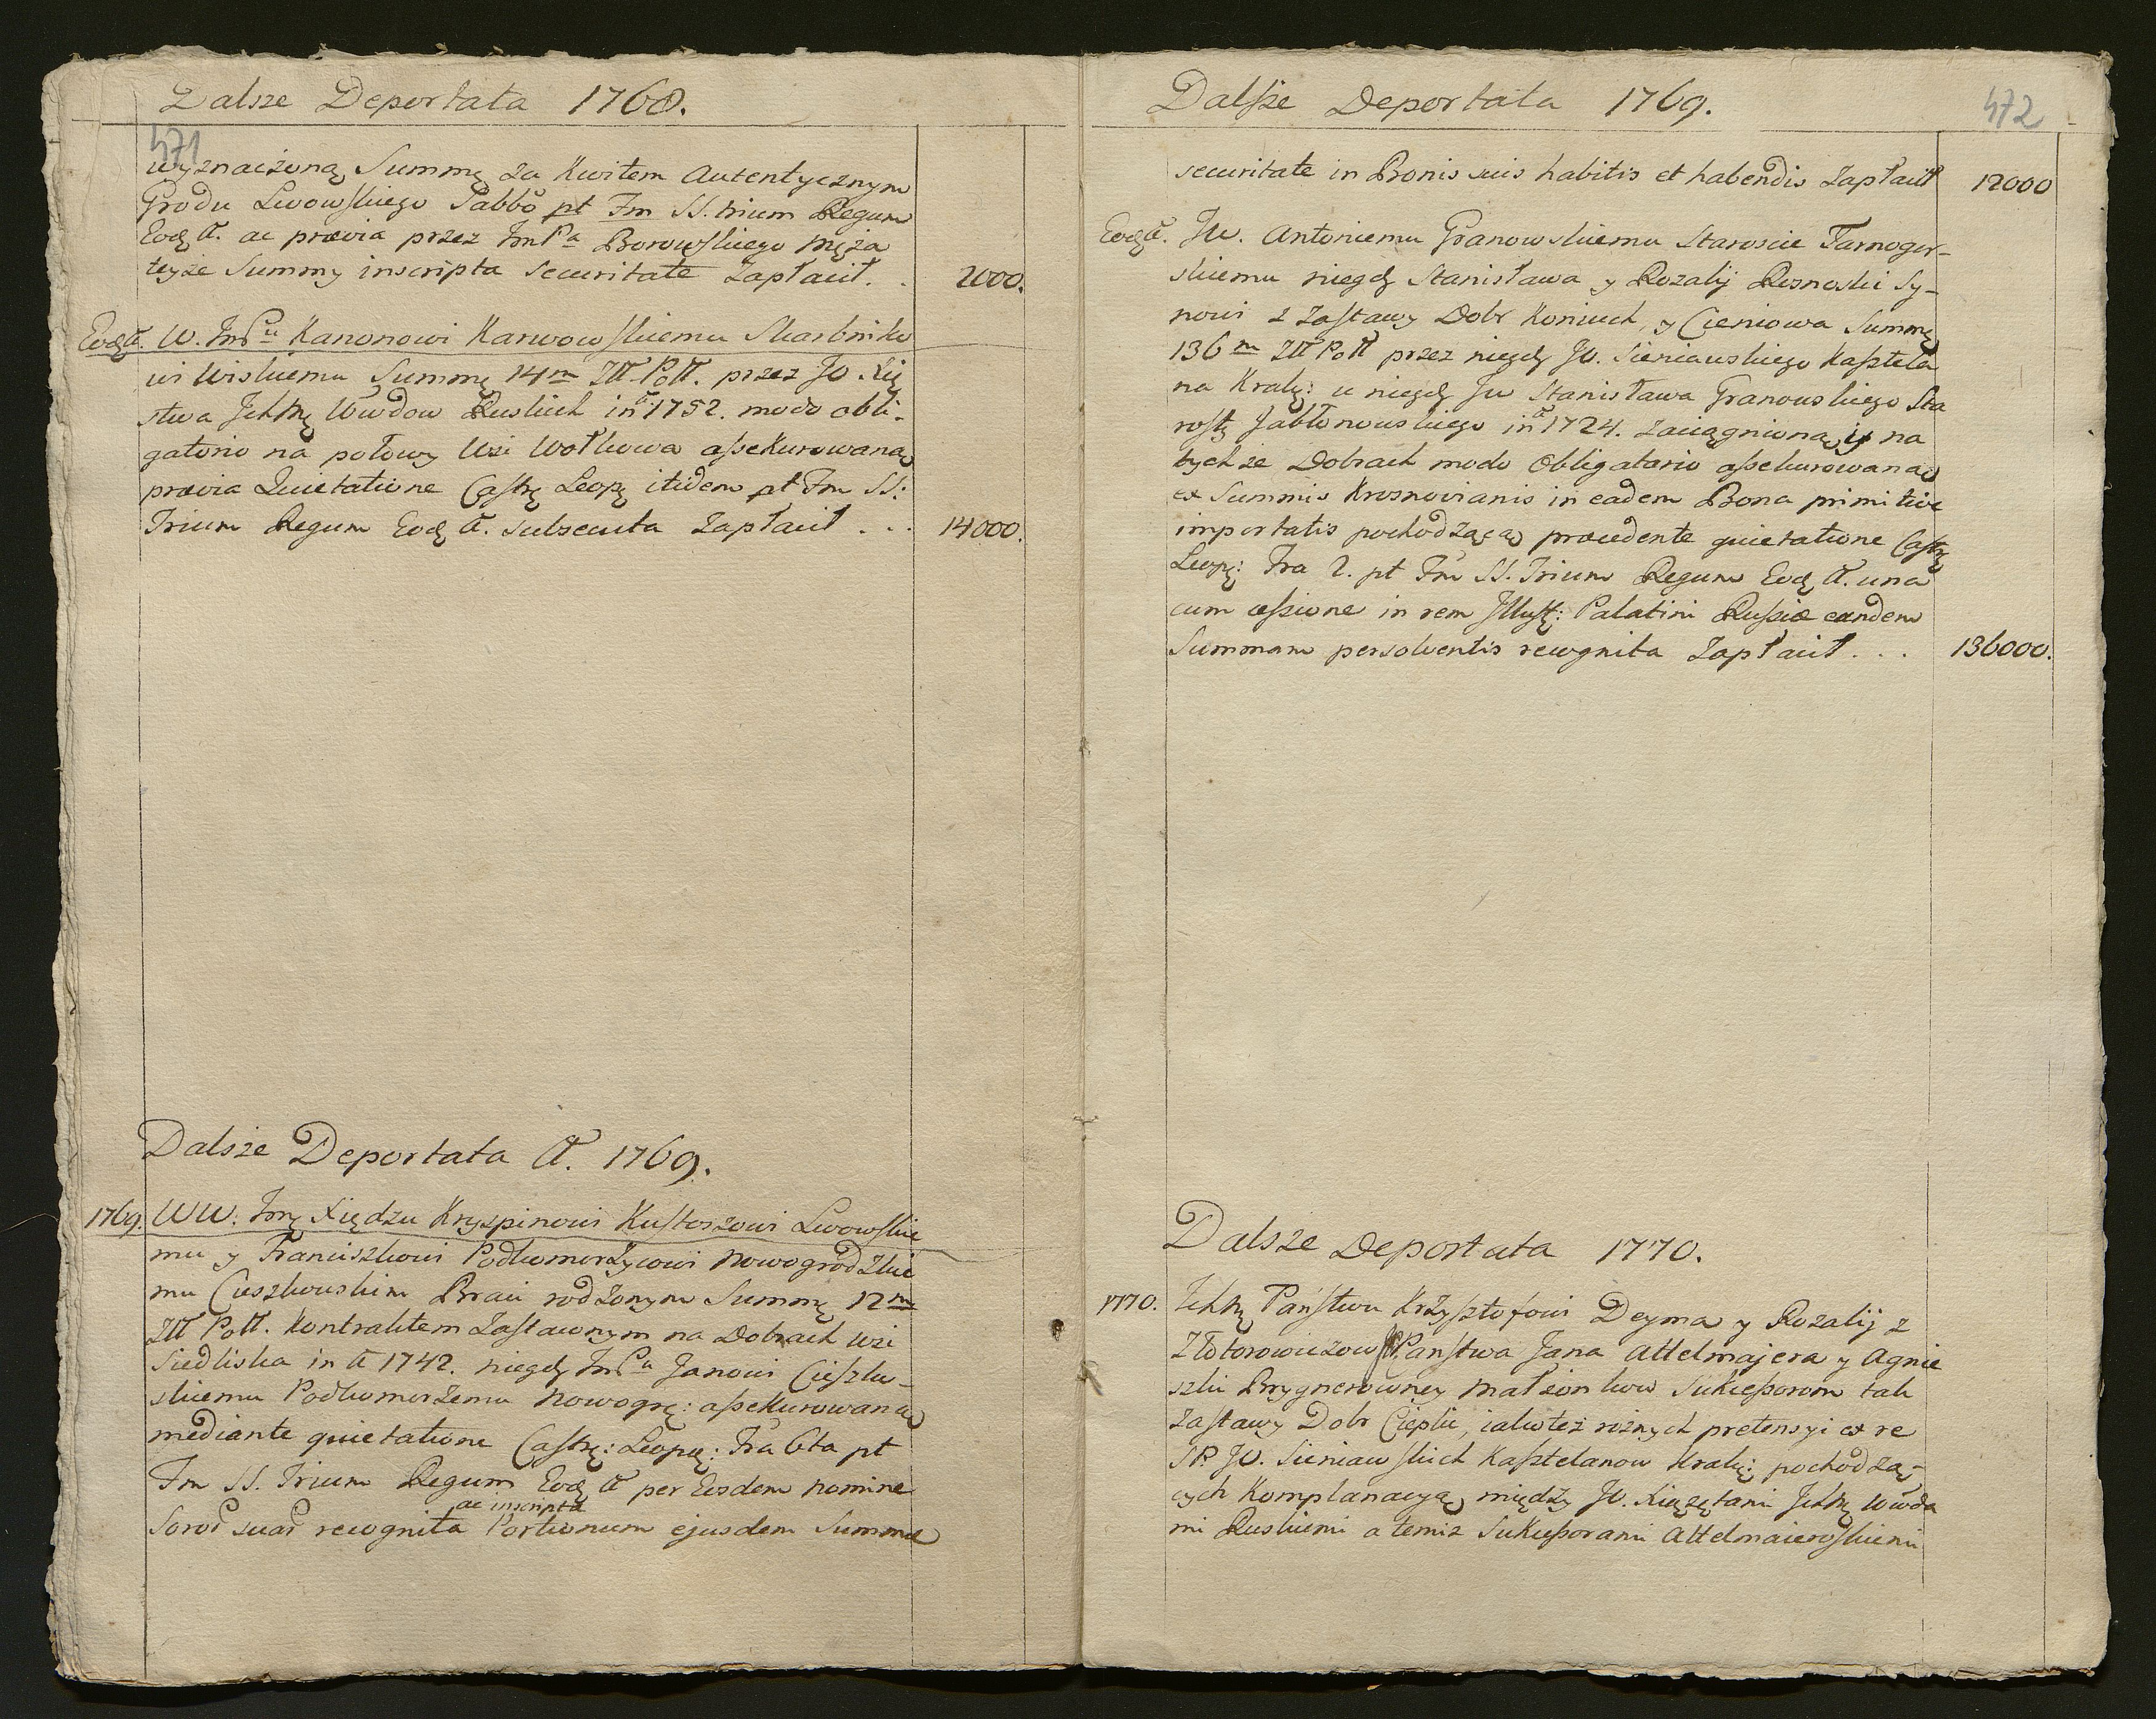 Dalsze Deportata 1768.
471
wyznaczoną Summę za Kwitem Autentycznym
Grodu Lwowskiego Sabbo pt Fm SS. trium Regum
Eodę A. ac prævia przez ImPa Borowskiego Męża
teyże Summy inscripta Securitate Zapłacił. . 2000.
Eodę A. W. ImPu Kanonowi Karwowskiemu Skarbniko
wi Wiskiemu Summę 14m Złł Poll. przez JO. Xię
stwa Ichmę Wwdow Ruskich in A 1752. modo obli-
gatorio na połowy Wsi Wołkowa assekurowaną
prævia Quietatione Castrę Leopę itidem pt Fm SS:
Trium Regum Eodę A. subsecuta Zapłacił . . . 14000.
Dalsze Deportata A. 1769.
1769. WW. Imę Xiędzu Kryspinowi Kustoszowi Lwowskie
mu y Franciszkowi Podkomorzycowi Nowogrodzkie
mu Cieszkowskim Braci rodzonym Summę 12m
Złł Poll. Kontraktem Zastawnym na Dobrach wsi
Siedliska in A 1742. niegdę ImPa Janowi Cieszko-
skiemu Podkomorzemu Nowogrę: assekurowaną
mediante quietatione Castrę: Leopę: Fra 6ta pt
Fm SS. Trium Regum Eodę A per Eosdem nomine
ac inscripta
Soror suar recognita Portionum ejusdem Summæ
Dalsze Deportata 1769.
472
securitate in Bonis suis habitis et habendis Zapłacił 12000
Eodę A. JW. Antoniemu Granowskiemu Staroscie Tarnogor-
skiemu niegdę Stanisława y Rozalij Resnoski Sy-
nowi z Zastawy Dobr Koniuch, y Cieniowa Summę
136m Złł Poll przez niegdę JW. Sieniawskiego Kasztela
na Krakę: u niegdę JW Stanisława Granowskiego Sta
rostę Jabłonowskiego in A 1724. zaciągnioną, y na
tychże Dobrach modo Obligatorio assekurowaną
ex Summis Krosnovianis in eadem Bona primitive
importatis pochodzącą præcedente quietatione Castrę
Leopę: Fra 2. pt Fm SS. Trium Regum Eodę A. una
cum cessione in rem Illusę: Palatini Russiæ eandem
Summam persolventis recognita Zapłacił . . . 136000.
Dalsze Deportata 1770.
1770. Ichmę Państwu Krzysztofowi Deyma y Rozalij z
Złotorowiczow Państwa Jana Attelmajera y Agnie
szki Brygnerowney Małżonkow Sukcessorom tak
Zastawy Dobr Cieplic, iako też rożnych pretensyi ex re
SP. JO. Sieniawskich Kasztelanow Krakę: pochodzą-
cych Komplanacyą między JO. Xiążętami Ichmę Wwda
mi Ruskiemi a temiż Sukcessorami Attelmaieroskiemi